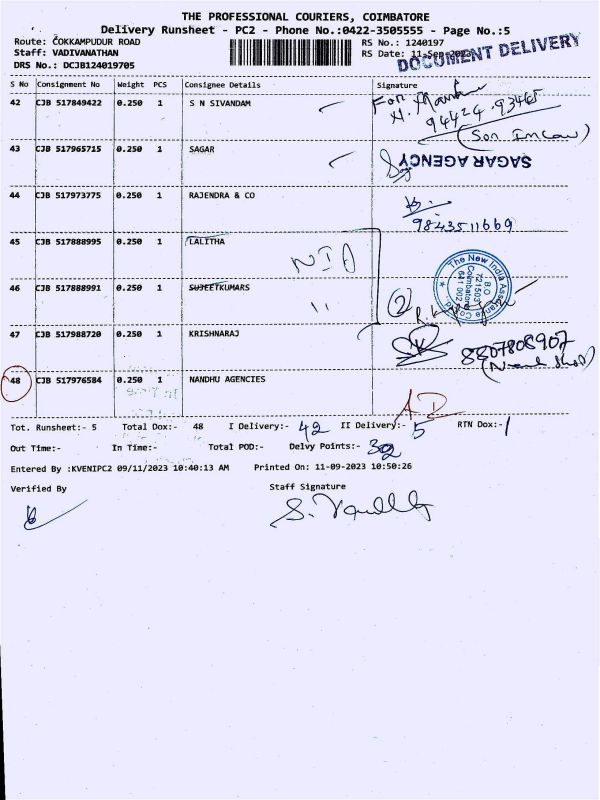 THE PROFESSIONAL COURIERS, COIMBATORE
Delivery Runsheet - PC2 - Phone No.:0422-3505555 - Page No.:5
Route: COKKAMPUDUR ROAD
RS No.: 1240197
Staff: VADIVANATHAN
RS Date: 11-Sep-2023
DOCUMENT DELIVERY
DRS No.: DCJB124019705
S No Consignment No Weight PCS Consignee Details Signature
42 CJB 517849422 0.250 1 S N SIVANDAM For
94424 93465
(Son In Law)
43 CJB 517965715 0.250 1 SAGAR SAGAR AGENCY
44 CJB 517973775 0.250 1 RAJENDRA & CO
9843511669
45 CJB 517888995 0.250 1 LALITHA NIA
The New India Assurance Co
B.O
721503
Coimbatore
641 002
46 CJB 517888991 0.250 1 SUJEETKUMARS " 2
47 CJB 517988720 0.250 1 KRISHNARAJ 8807808907
48 CJB 517976584 0.250 1 NANDHU AGENCIES AD
Tot. Runsheet:- 5 Total Dox:- 48 I Delivery:- 42 II Delivery:- 5 RTN Dox:- 1
Out Time:- In Time:- Total POD:- Delvy Points:- 32
Entered By :KVENIPC2 09/11/2023 10:40:13 AM Printed On: 11-09-2023 10:50:26
Verified By Staff Signature